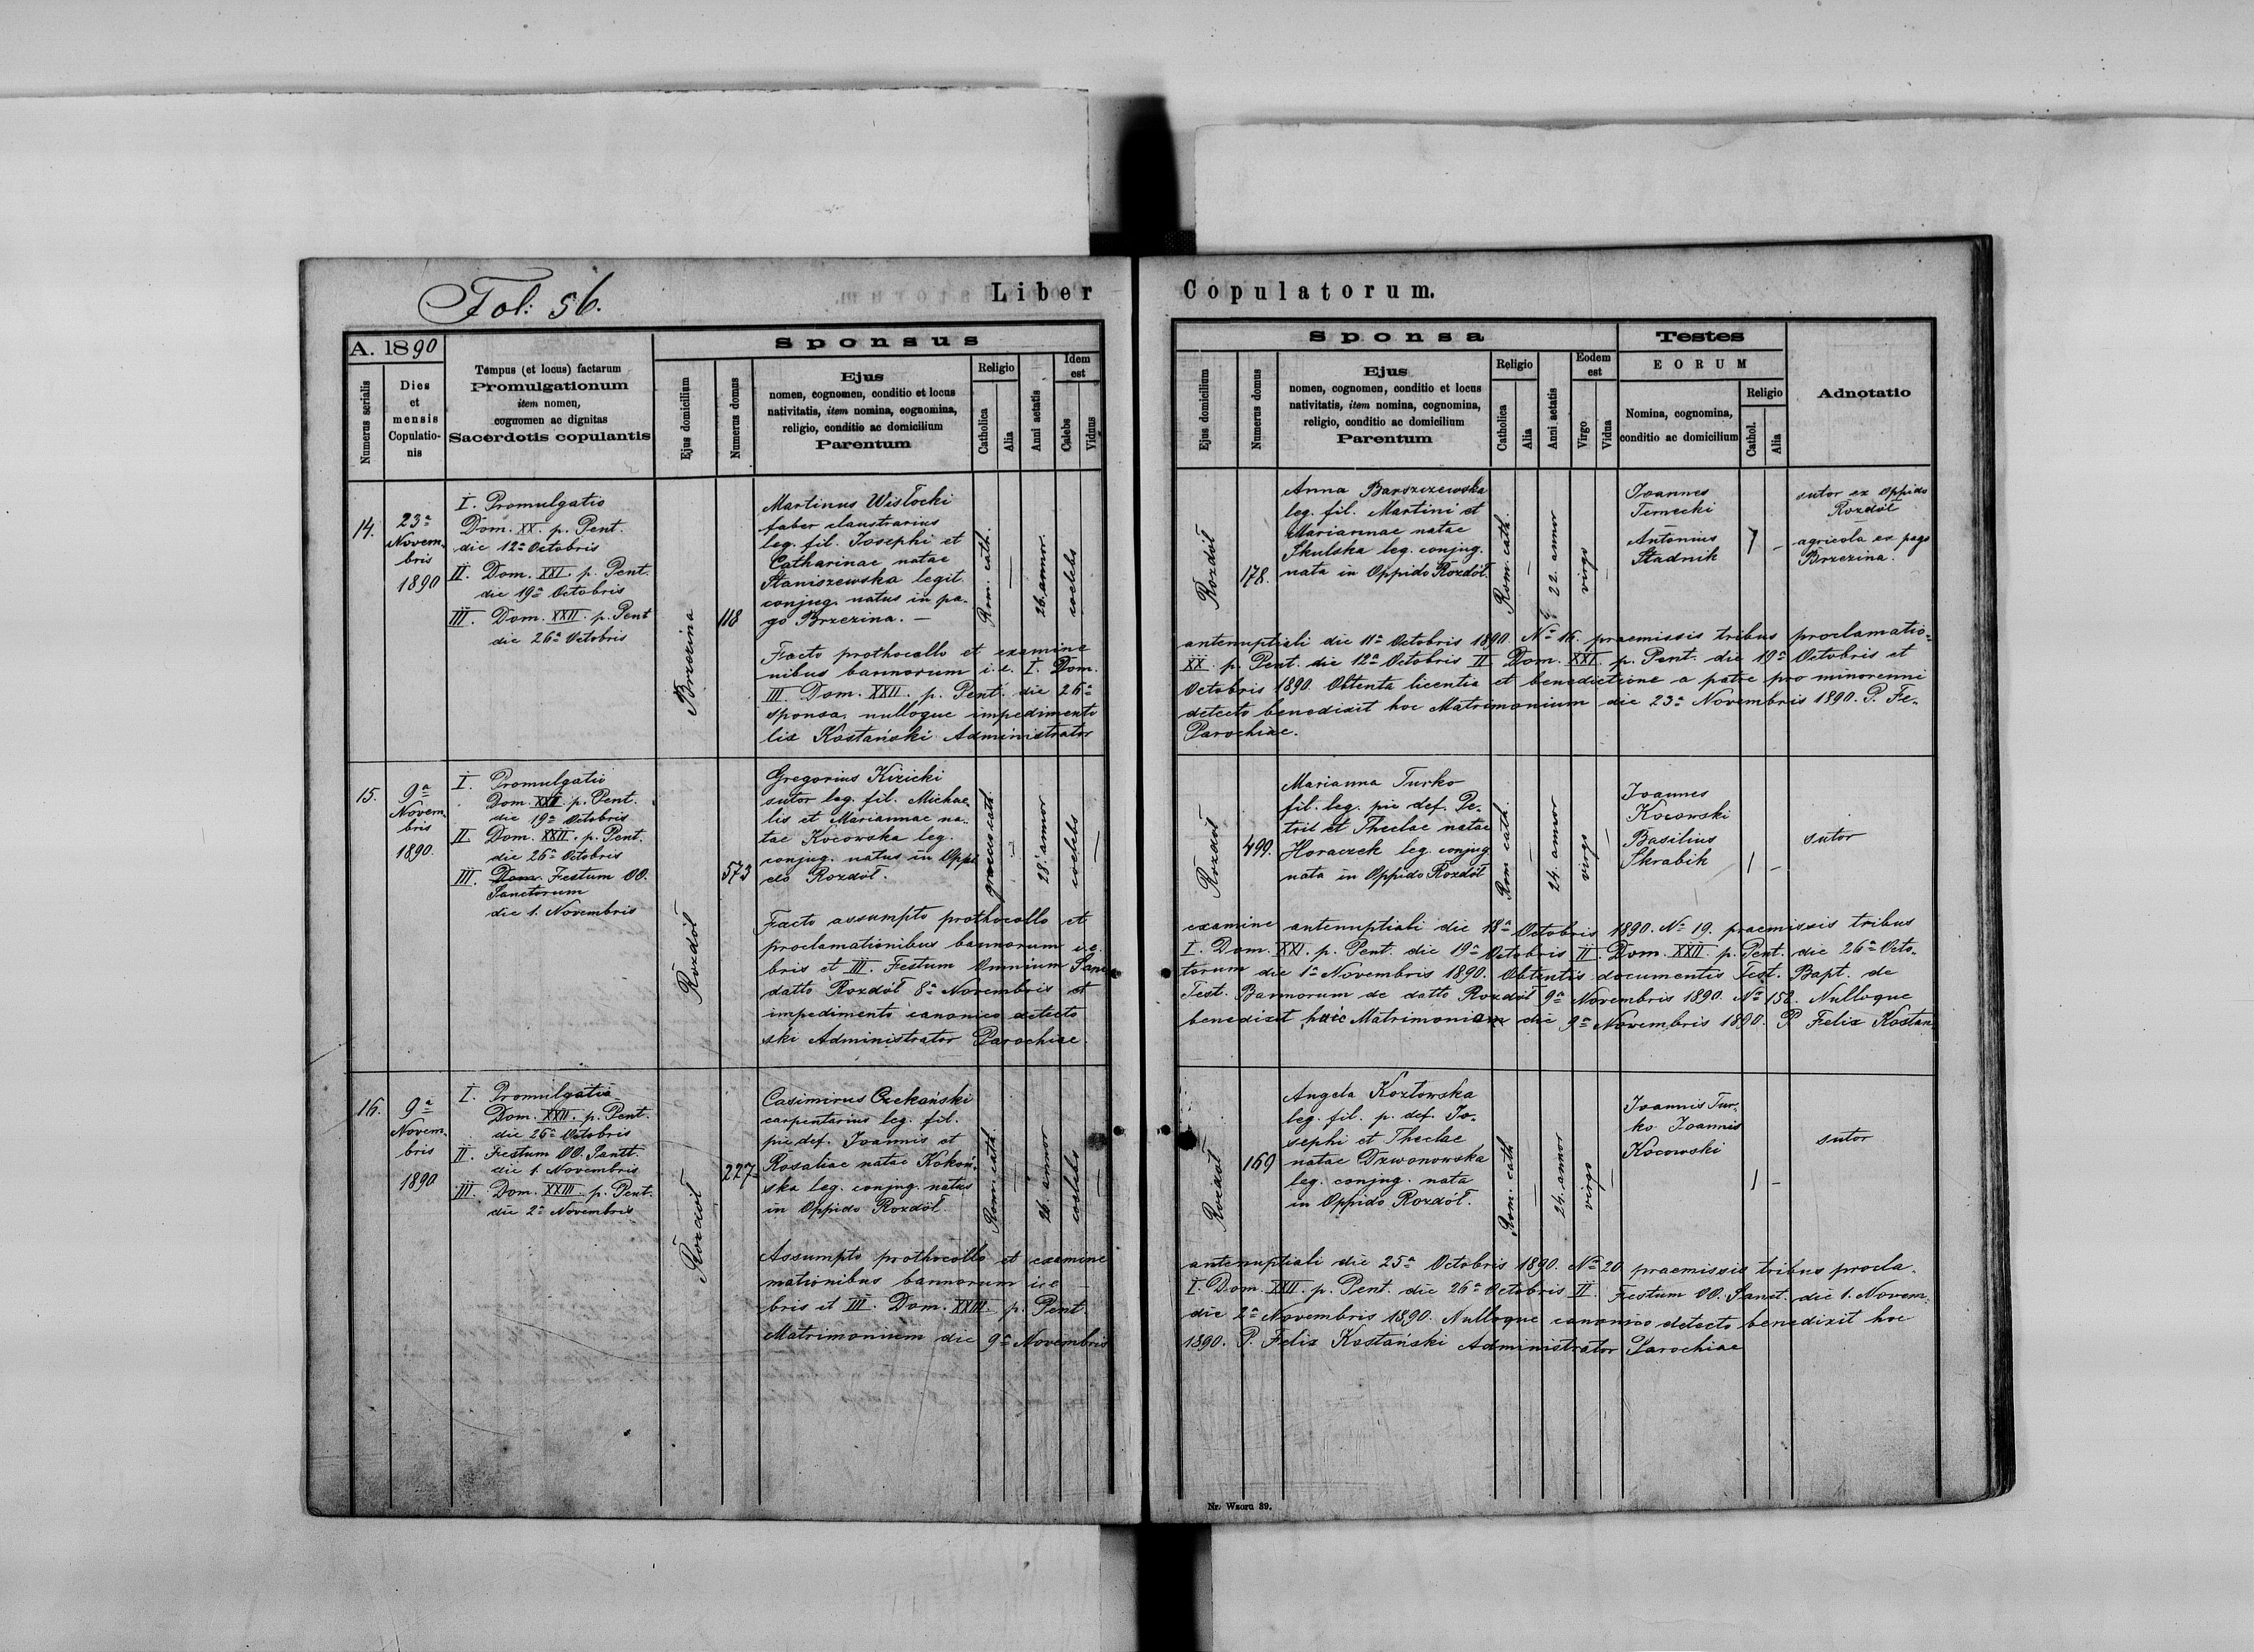 Fol: 56.
Liber Copulatorum.
A. 1890
Numerus serialis
Dies et mensis Copulatio-nis
Tempus (et locus) factarum
Promulgationum
item nomen,
cognomen ac dignitas
Sacerdotis copulantis
Sponsus
Ejus domicilium
Numerus domus
Ejus
nomen, cognomen, conditio et locus
nativitatis, item nomina, cognomina,
religio, conditio ac domicilium
Parentum
Religio
Catholica
Alia
Anni aetatis
Idem est
Caelebs
Viduus
Sponsa
Ejus domicilium
Numerus domus
Ejus
nomen, cognomen, conditio et locus
nativitatis, item nomina, cognomina,
religio, conditio ac domicilium
Parentum
Religio
Catholica
Alia
Anni aetatis
Eodem est
Virgo
Vidua
Testes
EORUM
Nomina, cognomina,
conditio ac domicilium
Religio
Cathol.
Alia
Adnotatio
14.
23a
Novem.
bris
1890
I. Promulgatio
Dom. XX. p. Pent.
die 12a Octobris
II. Dom. XXI. p. Pent.
die 19a Octobris
III. Dom. XXII. p. Pent
die 26a Octobris
Brzezina
118
Martinus Wisłocki
faber claustrarius
leg. fil. Josephi et
Catharinae natae
Staniszewska legit.
conjug. natus in pa-
go Brzezina. —
Rom. cath.
26. annor.
coelebs
Rozdół
178.
Anna Barszczewska
leg. fil. Martini et
Mariannae natae
Skulska leg. conjug.
nata in Oppido Rozdół.
Rom. cath.
22. annor
virgo
Joannes
Ternecki
Antonius
Stadnik
sutor ex Oppido
Rozdół
agricola ex pago
Brzezina.
Facto prothocollo et examine antenuptiali die 11a Octobris 1890. No 16. praemissis tribus proclamatio-
nibus bannorum i.e. I. Dom. XX. p. Pent. die 12a Octobris II Dom. XXI. p. Pent. die 19a Octobris et
III Dom. XXII. p. Pent. die 26a Octobris 1890. Obtenta licentia et benedictione a patre pro minorenni
sponsa, nulloque impedimento detecto benedixit hoc Matrimonium die 23a Novembris 1890. P. Fe-
lix Kostański Administrator Parochiae.
15.
9a
Novem.
bris
1890.
I. Promulgatio
Dom. XXI. p. Pent.
die 19a Octobris
II Dom. XXII. p. Pent.
die 26a Octobris
III. Dom. Festum OO.
Sanctorum
die 1. Novembris
Rozdół
573
Gregorius Kizicki
sutor leg. fil. Michae-
lis et Mariannae na-
tae Kocowska leg.
conjug. natus in Oppi
do Rozdół.
graecus cath.
annor
coelebs
Rozdół
499.
Marianna Turko
fil. leg. pie def. Pe-
tri et Theclae natae
Horaczek leg. conjug
nata in Oppido Rozdół
Rom cath.
24. annor
virgo
Joannes
Kocowski
Basilius
Skrabik
sutor
Facto assumpto prothocollo et examine antenuptiali die 18a Octobris 1890. No 19. praemissis tribus
proclamationibus bannorum i.e. I. Dom. XXI. p. Pent. die 19a Octobris II. Dom. XXII. p. Pent. die 26a Octo-
bris et III. Festum Omnium Sanc torum die 1a Novembris 1890. Obtentis documentis Test. Bapt. de
datto Rozdół 8a Novembris et Test. Bannorum de datto Rozdół 9a Novembris 1890. No 152. Nulloque
impedimento canonico detecto benedixit hoc Matrimonium die 9a Novembris 1890. P. Felix Kostań
ski Administrator Parochiae.
16.
9a
Novem.
bris
1890
I. Promulgatio
Dom. XXII. p. Pent.
die 26a Octobris
II. Festum OO. Sanct.
die 1. Novembris
III. Dom. XXIII. p. Pent.
die 2a Novembris
Rozdół
227
Casimirus Czekański
carpentarius leg. fil.
pie def. Joannis et
Rosaliae natae Kokoń-
ska leg. conjug. natus
in Oppido Rozdół
Rom. cath.
26. annor
coelebs
Rozdół
169
Angela Kozłowska
leg. fil. p. def. Jo-
sephi et Theclae
natae Dzwonowska
leg. conjug. nata
in Oppido Rozdół.
Rom. cath
24. annor
virgo
Joannis Tur-
ko Joannis
Kocowski
sutor
Assumpto prothocollo et examine antenuptiali die 25a Octobris 1890. No 20 praemissis tribus procla-
mationibus bannorum i.e I. Dom. XXII. p. Pent. die 26a Octobris II. Festum OO. Sanct. die 1. Novem-
bris et III. Dom. XXIII. p. Pent. die 2a Novembris 1890. Nulloque canonico detecto benedixit hoc
Matrimonium die 9a Novembris 1890. P. Felix Kostański Administrator Parochiae
Nr. Wzoru 39.